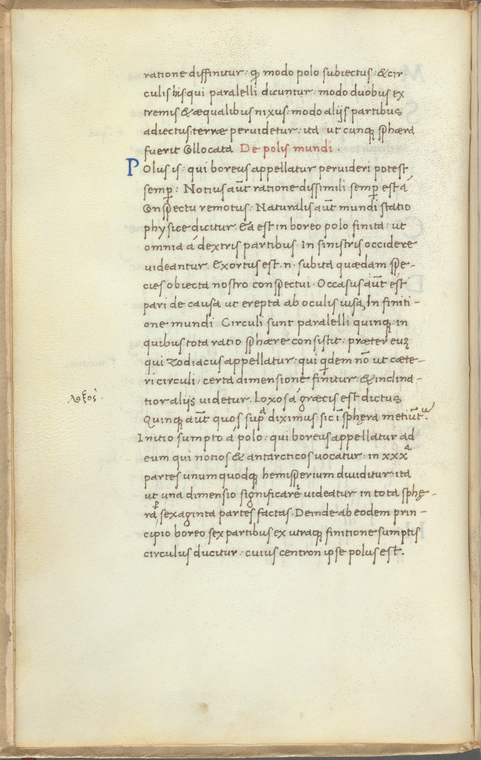 ratione diffinitur: q̄ modo polo subiectus: & cir
culis hisqui paralelli dicuntur: modo duobus ex
tremis & æqualibus nixus: modo alijs partibus
adiectus terræ peruidetur: ita ut cunq; sphæra
fuerit Collocata De polis mundi.
Polus is: qui boreus appellatur peruideri potest
semp̄: Notius aūt ratione dissimili semp̄ est á
Conspectu remotus: Naturalis aūt mundi statio
physice dicitur Ea est in boreo polo finita: ut
omnia á dextris partibus In sinistris occidere
uideantur. Exortus est .n. subita quædam spe-
cies obiecta nostro conspectui. Occasus aūt est
pari de causa ut erepta ab oculis iusa, In finiti-
one mundi Circuli sunt paralelli quinq; in
quibus tota ratio sphære consistit: præter eūz
qui Zodiacus appellatur: qui q̇dem nō ut cæte-
ri circuli: certa dimensione finitur & inclina
tior alijs uidetur. Loxos á græcis est dictus
λοξος.
Quinq; aūt quos sup̄ diximus sic ī sphera metiūtᵘʳ.
Initio sumpto a polo: qui boreus appellatur ad
eum qui notios & antarcticos uocatur: in xxxᵃ
partes unumquodq; hemisperium diuiditur: ita
ut una dimensio significare uideatur in tota sphę-
ra sexaginta partes factas. Deinde ab eodem prin-
cipio boreo sex partibus ex utraq; finitione sumptis
circulus ducitur: cuius centron ipse polus est.